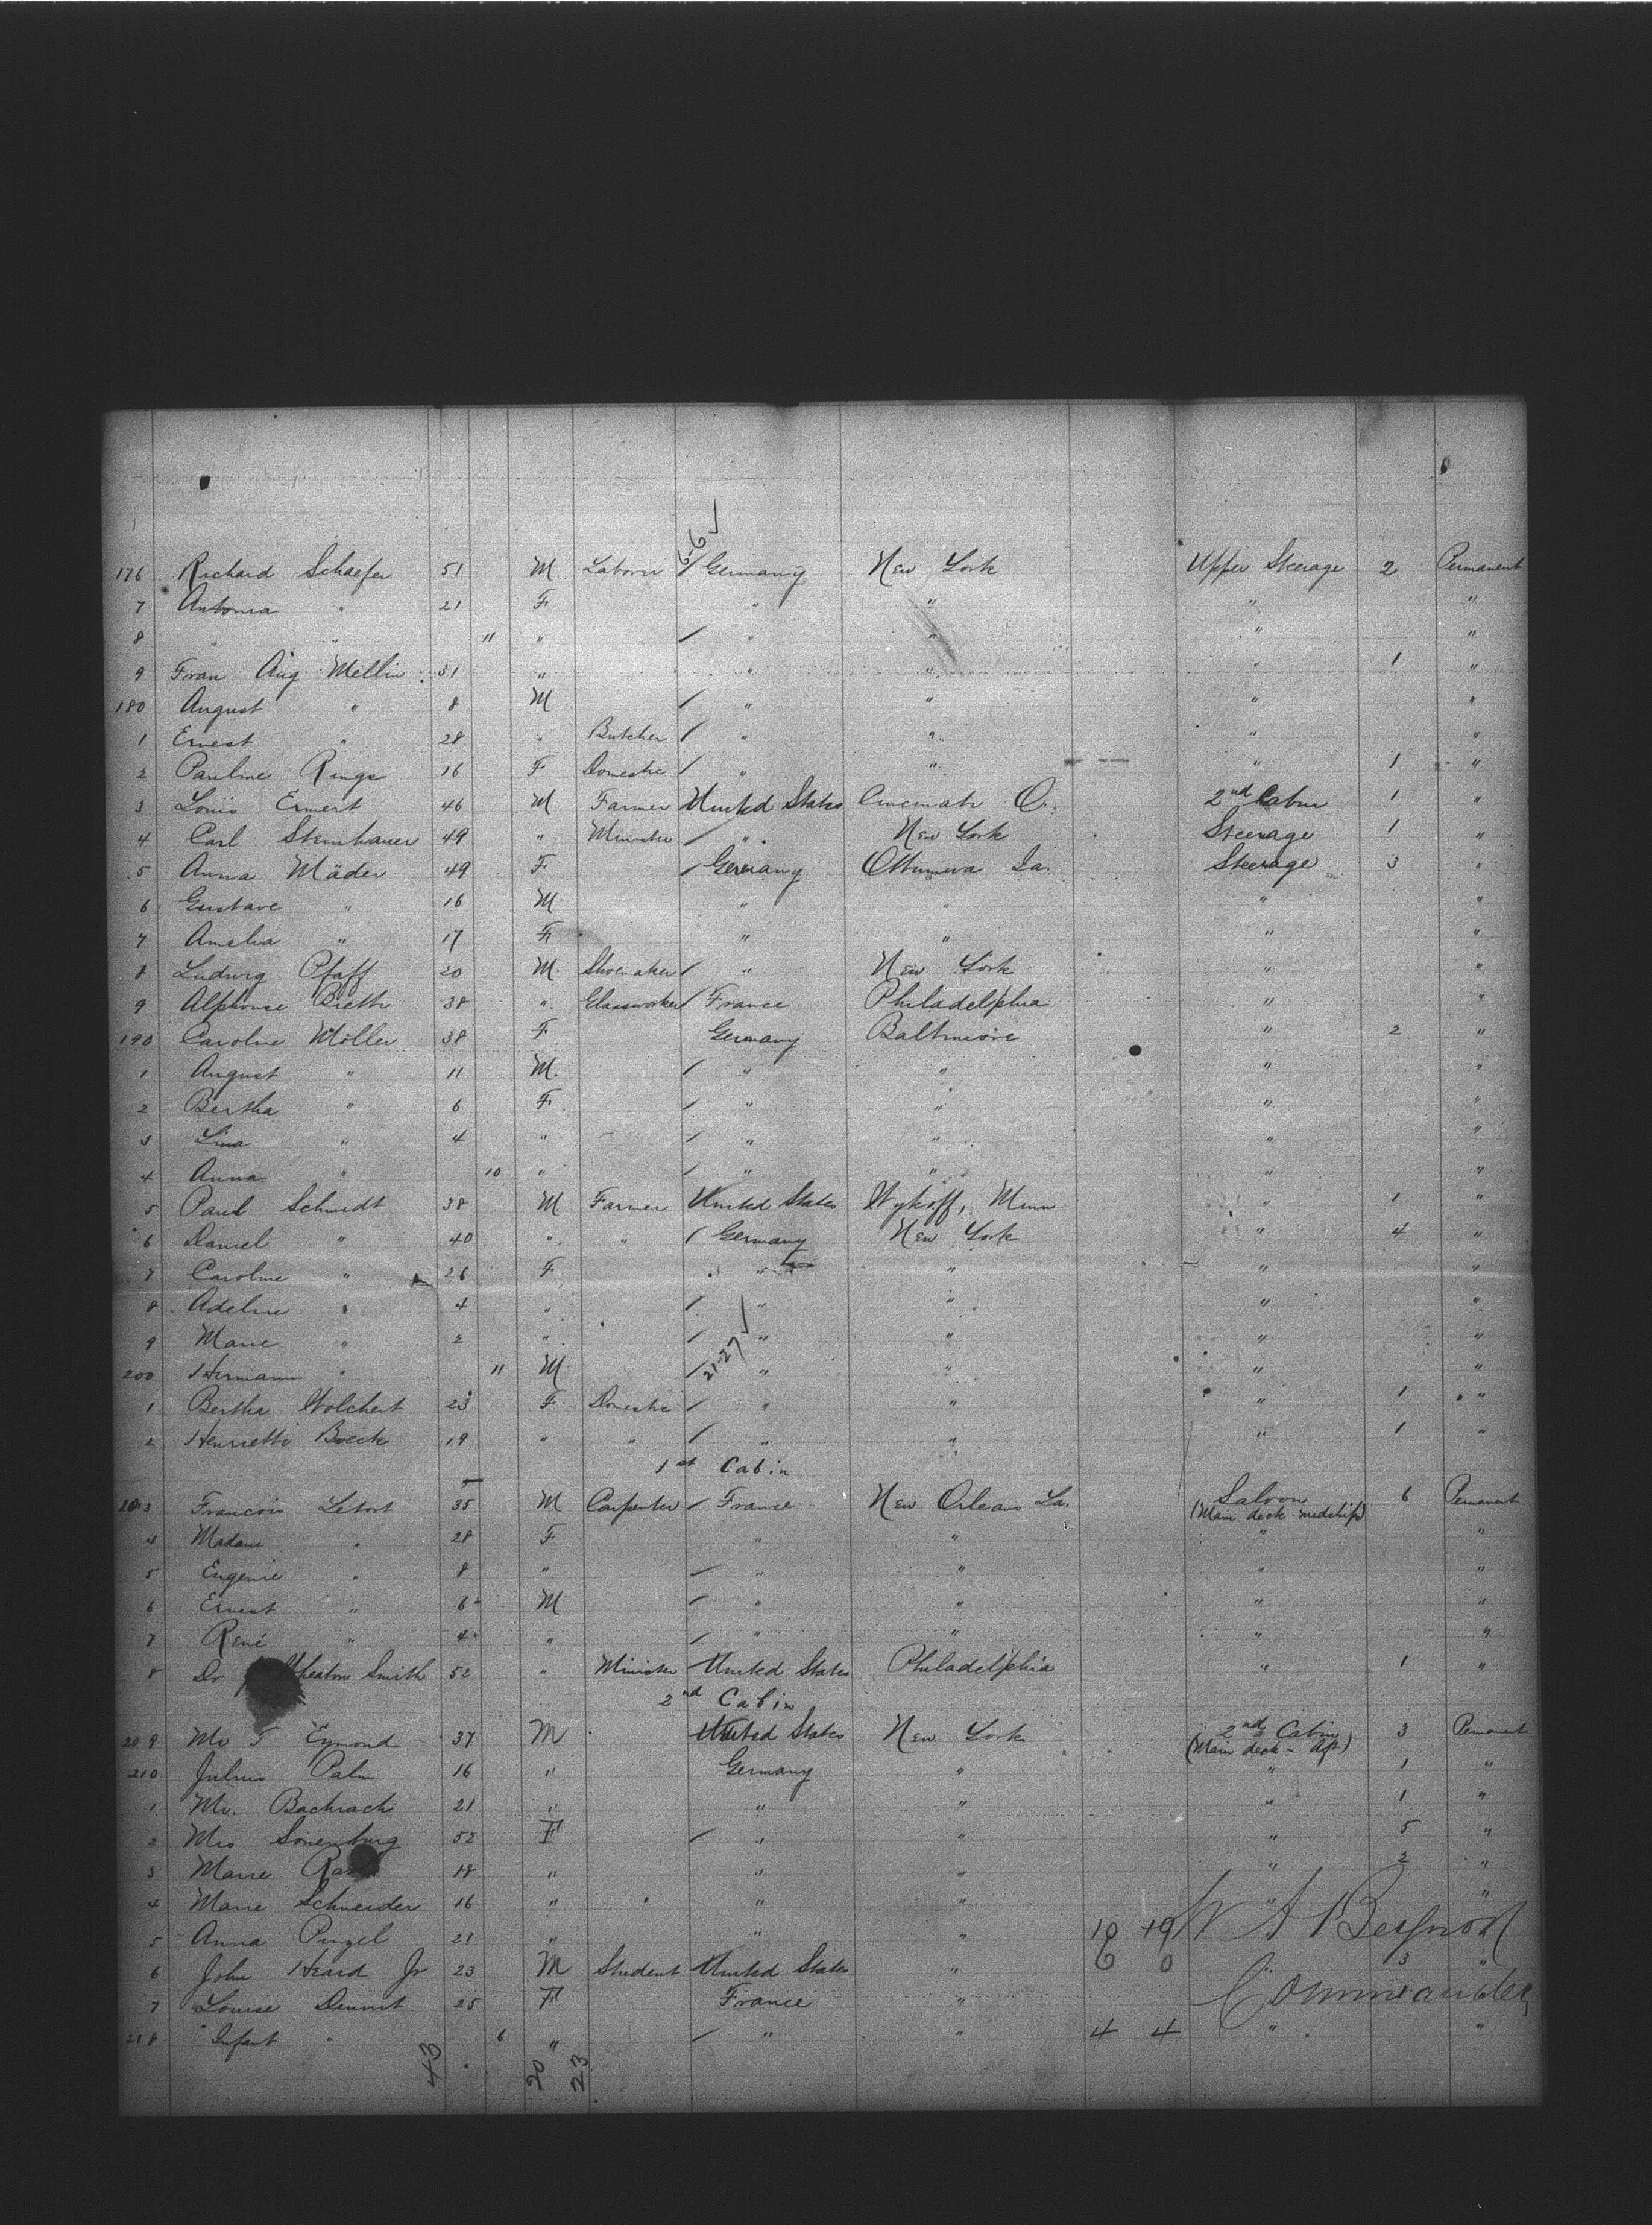 6-6 ✓
176 Richard Schaefer 51 M Laborer / Germany New York Upper Steerage 2 Permanent
7 Antonia " 21 F " " " "
8 " " 11 " / " " " "
9 Fran Aug Mellin 31 " " " " 1 "
180 August " 8 M / " " " "
1 Ernest " 28 " Butcher / " " " "
2 Pauline Rings 16 F Domestic / " " " 1 "
3 Louis Ermert 46 M Farmer United States Cincinati O. 2nd Cabin 1 "
4 Carl Steinhauer 49 " Minister / " New York Steerage 1 "
5 Anna Mäder 49 F / Germany Ottumwa Ia. Steerage 3 "
6 Gustave " 16 M " " " "
7 Amelia " 17 F " " " "
8 Ludwig Pfaff 20 M. Shoemaker / " New York " "
9 Alphonse Bieth 38 " Glassworker / France Philadelphia " "
190 Caroline Möller 38 F Germany Baltimore " 2 "
1 August " 11 M. / " " " "
2 Bertha " 6 F / " " " "
3 Lina " 4 " / " " " "
4 Anna " 10 " / " " " "
5 Paul Schmidt 38 M Farmer United States Wykoff, Minn " 1 "
6 Daniel " 40 " " / Germany New York " 4 "
7 Caroline " 26 F " " " "
8 Adeline " 4 " / " " " "
9 Marie " 2 " / " " " "
21-27 ✓
200 Hermann " 11 M / " " " "
1 Bertha Wolchert 23 F Domestic / " " " 1 "
2 Henrietti Boeck 19 " " / " " " 1 "
1st Cabin
203 Francois Letort 35 M Carpenter / France New Orleans La. Saloon 6 Permanent
(Main deck midship)
4 Madame " 28 F " " " "
5 Eugenie " 8 " / " " " "
6 Ernest " 6 M / " " " "
7 René " 4 " / " " " "
8 Dr Wheaton Smith 52 " Minister United States Philadelphia " 1 "
2nd Cabin
209 Mr Eymond 37 M United States New York 2nd Cabin 3 Permanent
(Main deck - Aft)
210 Julius Palm 16 " Germany " " 1 "
1 Mr. Bachrach 21 " " " " 1 "
2 Mrs Sonenburg 52 F / " " " 5 "
3 Marie 18 " " " " 2 "
4 Marie Schneider 16 " " " " "
5 Anna Pingel 21 " " " 19 19
6 John Heard Jr 23 M Student United States " 6 0 3 "
7 Louise Dennit 25 F France "
Commander
218 Infant " 6 " / " " 4 4 " "
43 20 23